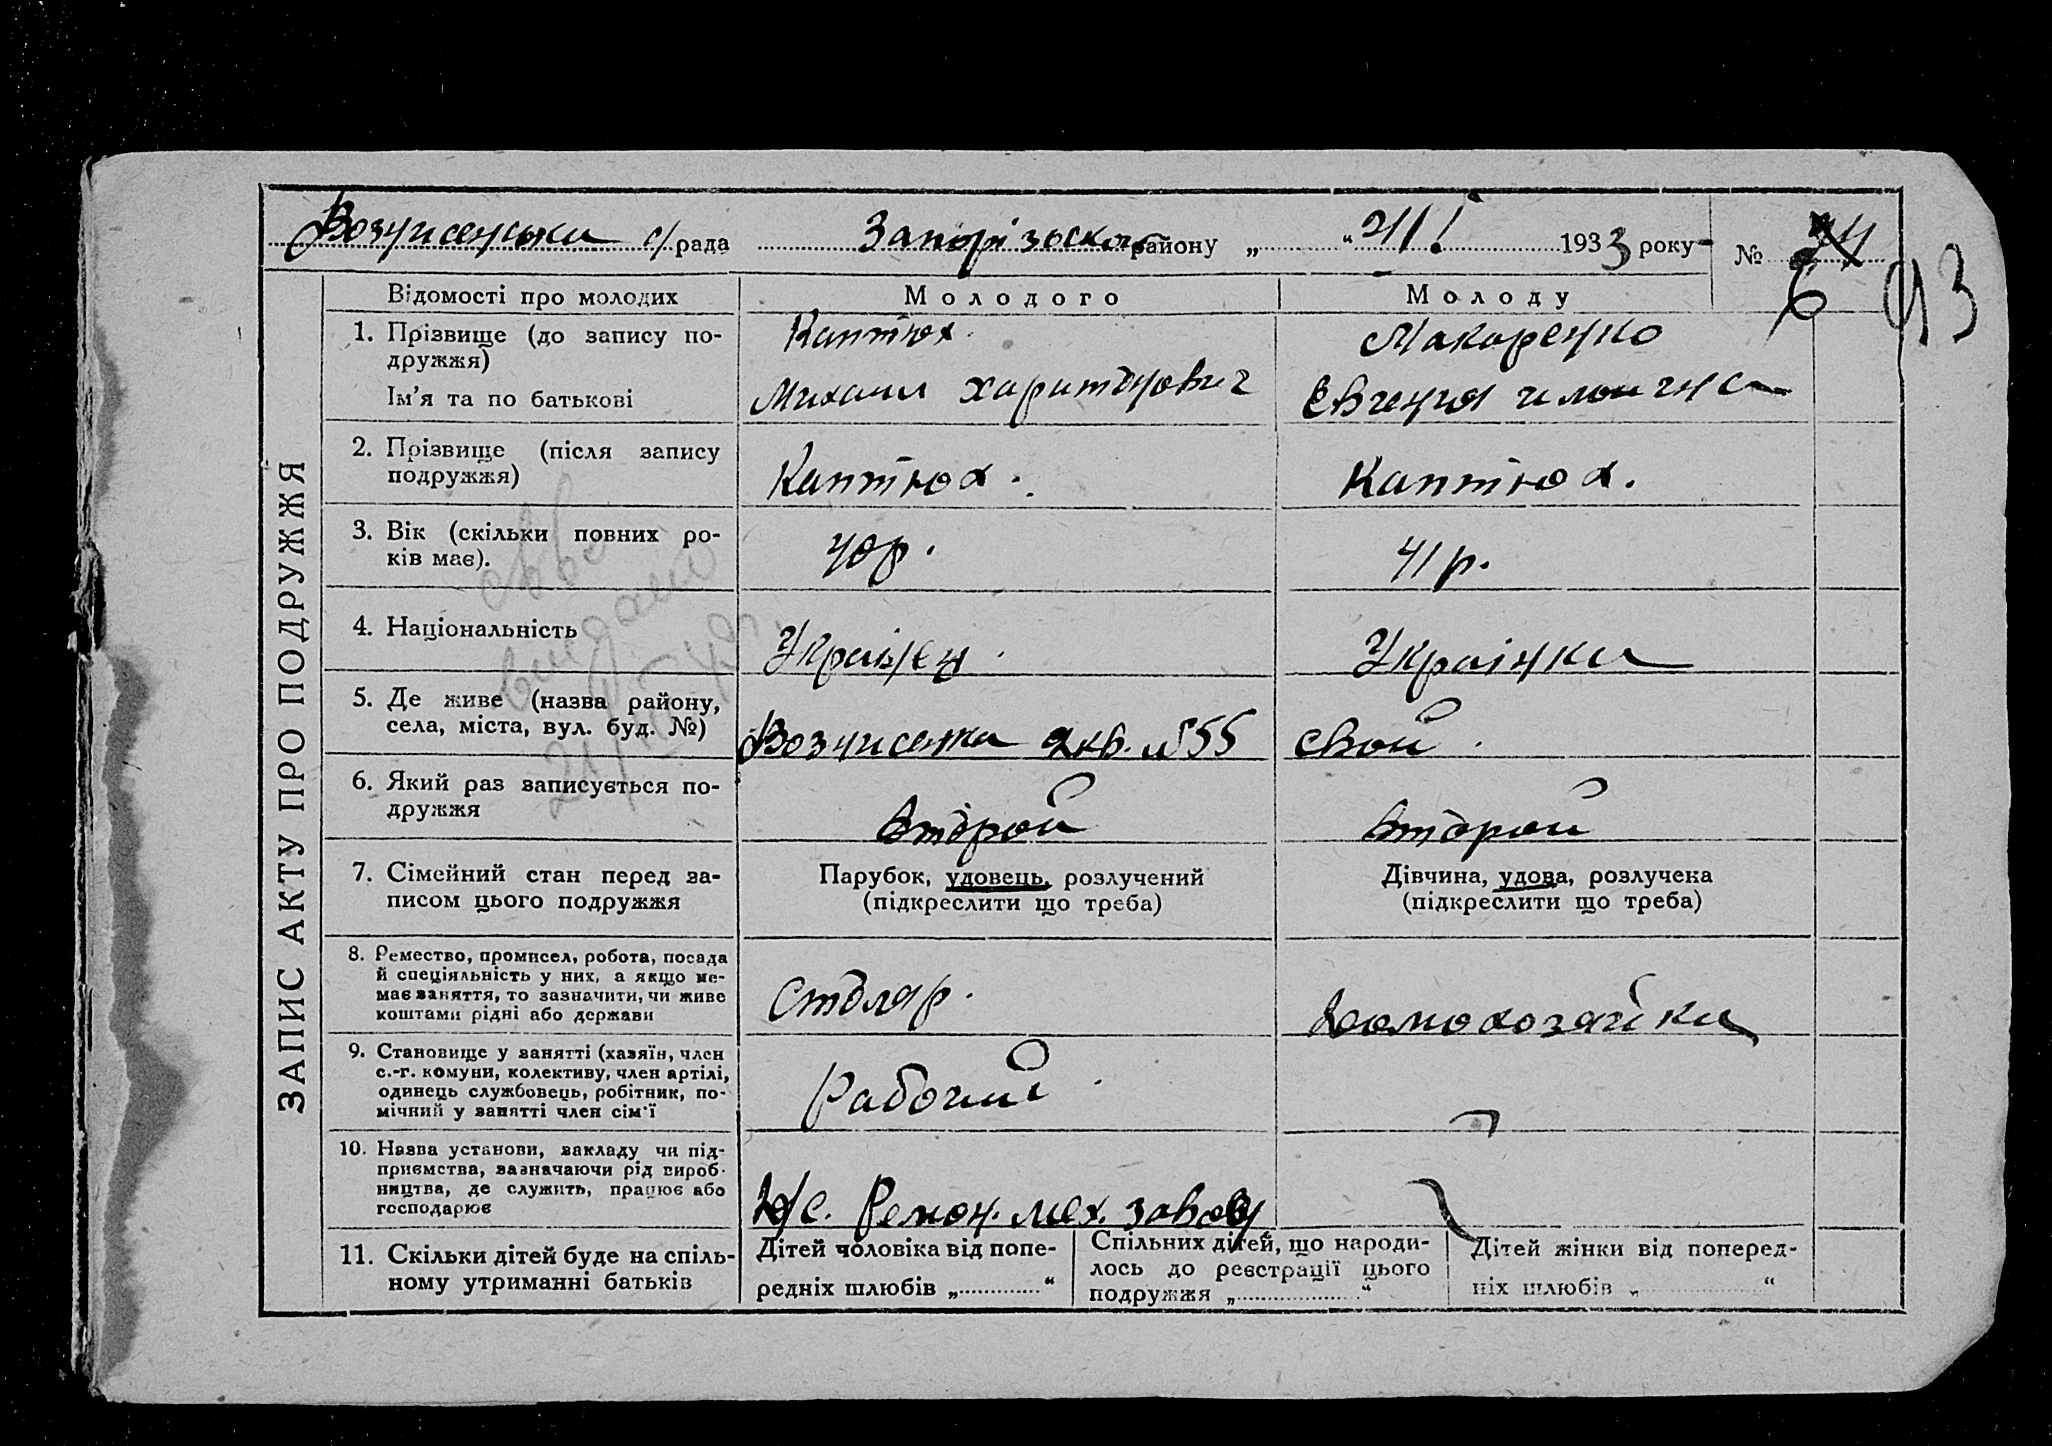 Вознисенська с/рада Запорізьского району „ “ 21/I 1933 року № 6
93
ЗАПИС АКТУ ПРО ПОДРУЖЖЯ
Відомості про молодих Молодого Молоду
1. Прізвище (до запису по-
дружжя) Каптюх. Макаренко
Ім'я та по батькові Михаил Харитонович Евгения
2. Прізвище (після запису
подружжя) Каптюх. Каптюх.
3. Вік (скільки повних ро-
ків має). 40р. 41р.
4. Національність Українец. Українка
5. Де живе (назва району,
села, міста, вул. буд. №) Вознисенка 2кв. №55 свой.
6. Який раз записується по-
дружжя второй второй
7. Сімейний стан перед за-
писом цього подружжя
Парубок, удовець, розлучений
(підкреслити що треба)
Дівчина, удова, розлучека
(підкреслити що треба)
8. Ремество, промисел, робота, посада
й спеціяльність у них, а якщо не-
має заняття, то зазначити, чи живе
коштами рідні або держави
Столяр. Домохозяйка
9. Становище у занятті (хазяїн, член
с.-г. комуни, колективу, член артілі,
одинець службовець, робітник, по-
мічний у занятті член сім'ї
Рабочий
10. Назва установи, закладу чи під-
приємства, зазначаючи рід вироб-
ництва, де служить, працює або
господарює
Ремон. мех. завод
11. Скільки дітей буде на спіль-
ному утриманні батьків
Дітей чоловіка від попе-
редніх шлюбів „ “
Спільних дітей, що народи-
лось до реєстрації цього
подружжя „ “
Дітей жінки від поперед-
ніх шлюбів „ “